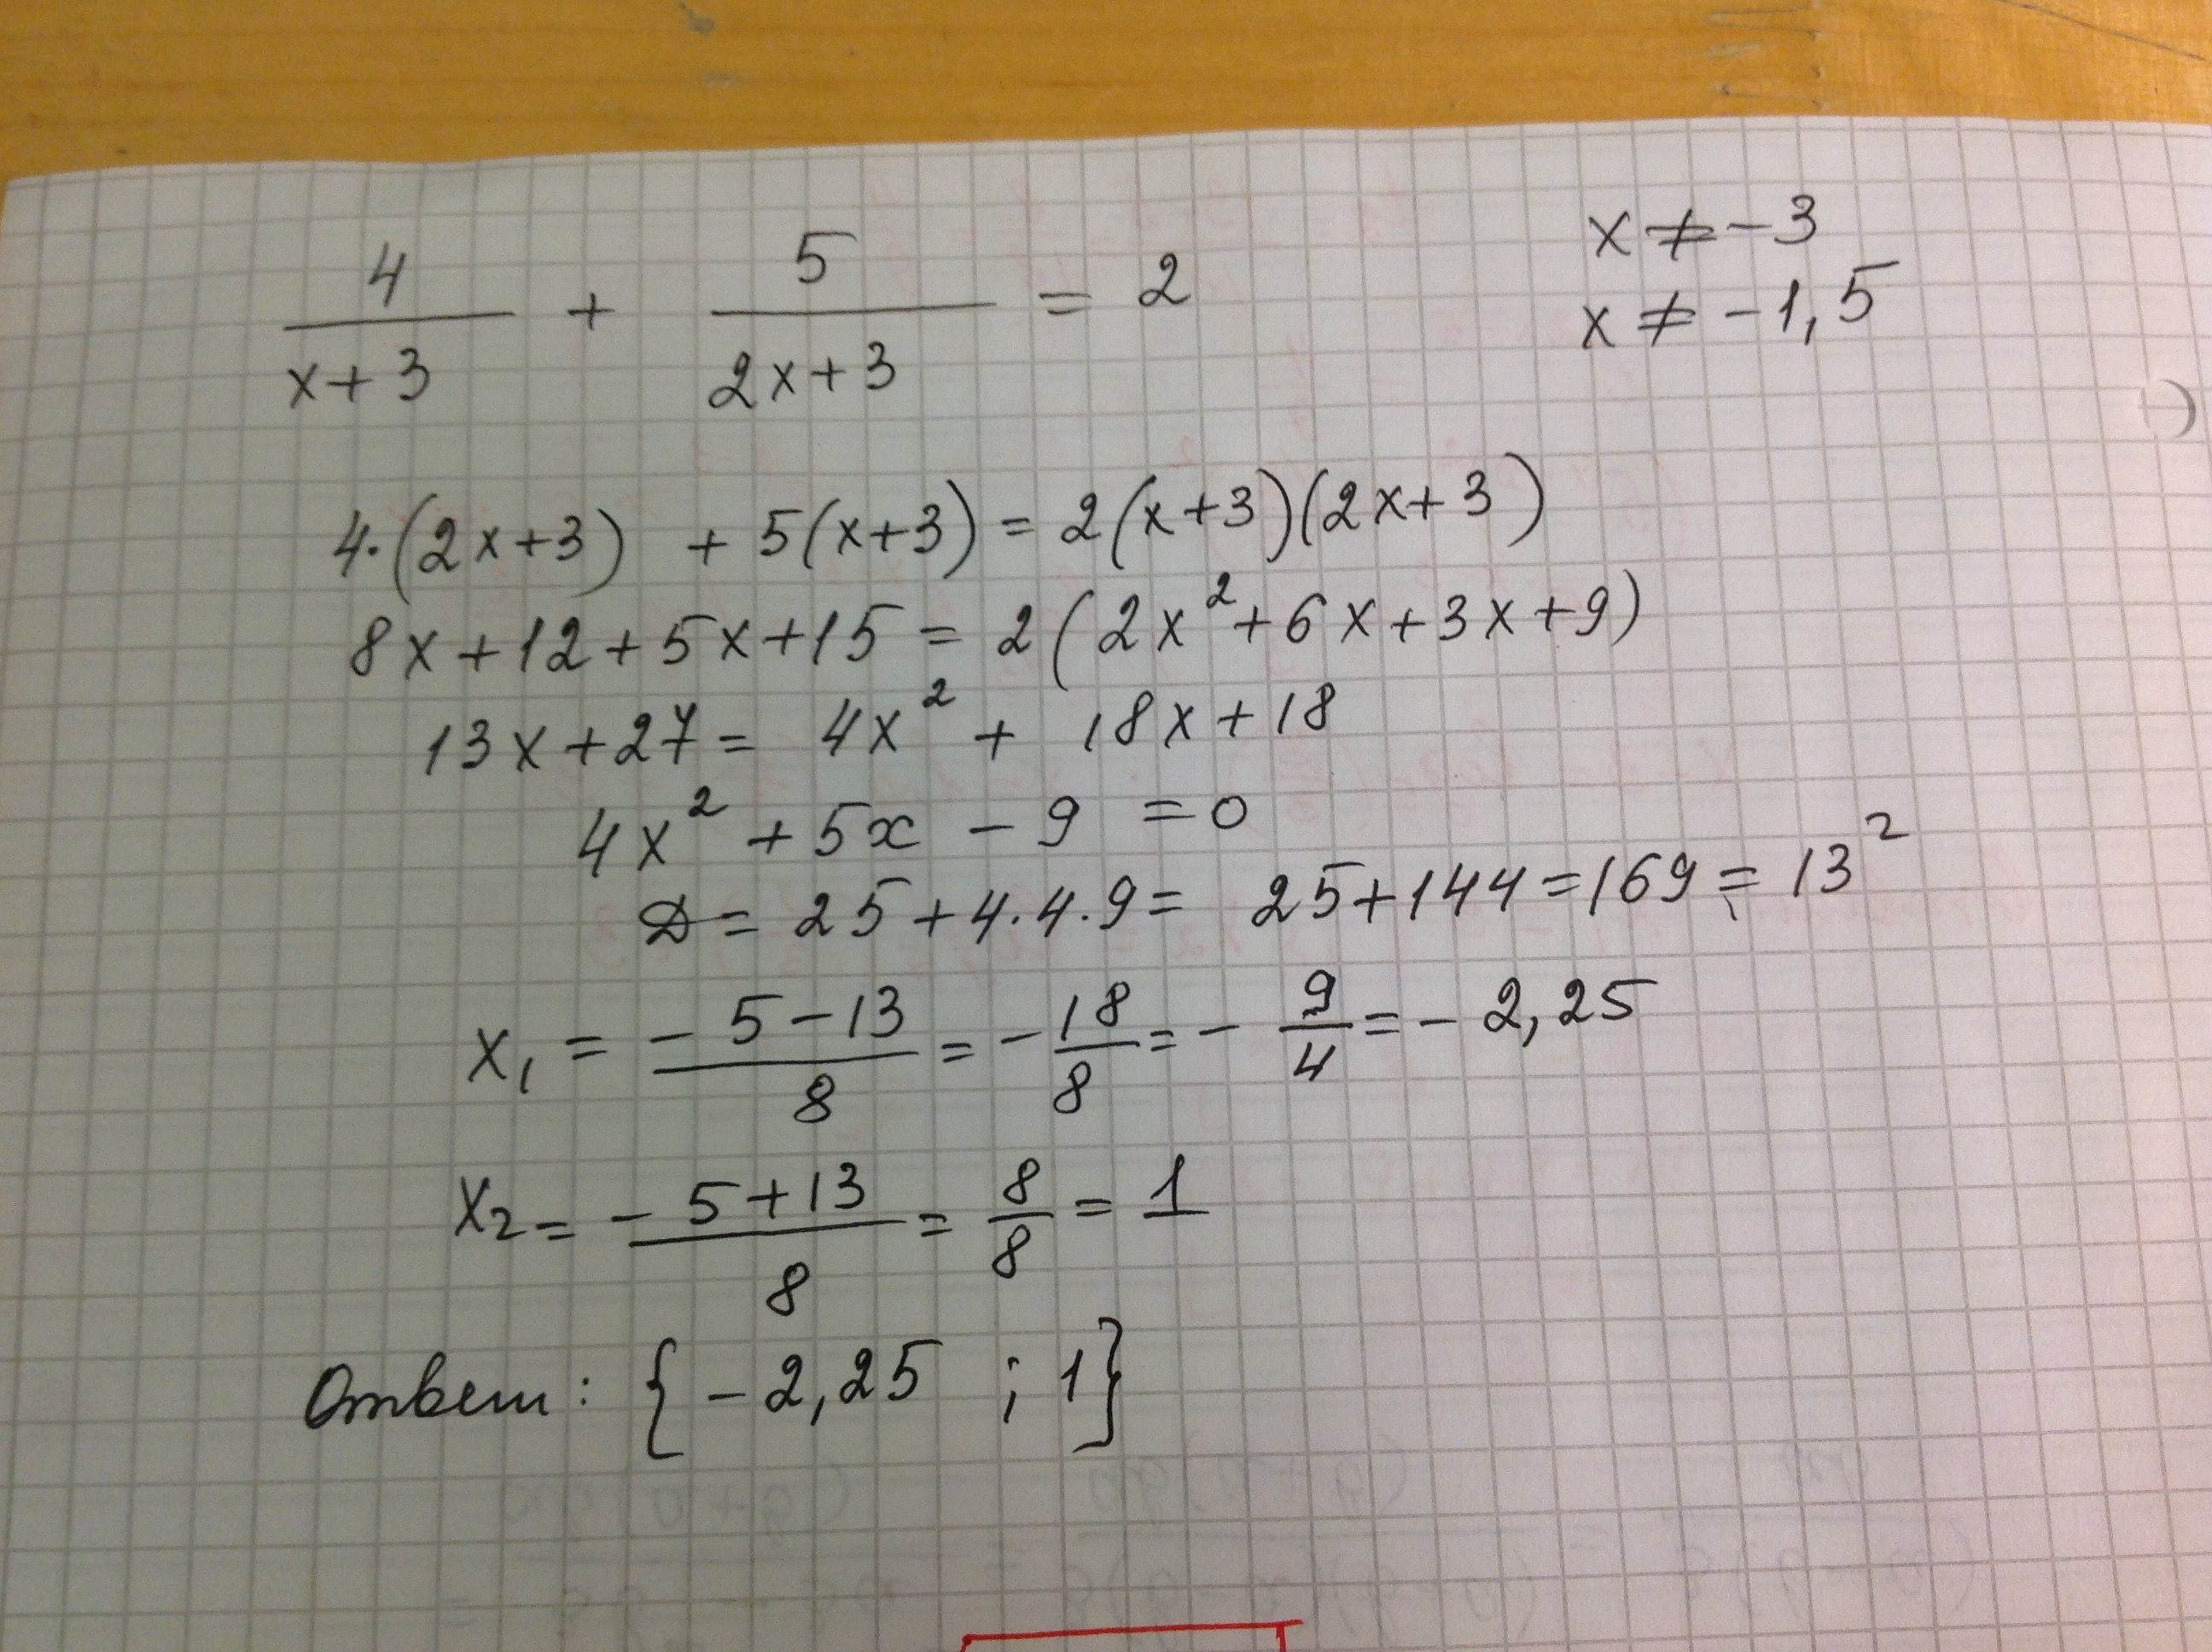 4/(x+3) + 5/(2x+3) = 2
x ≠ -3
x ≠ -1,5
4·(2x+3) + 5(x+3) = 2(x+3)(2x+3)
8x+12+5x+15 = 2(2x²+6x+3x+9)
13x+27 = 4x² + 18x+18
4x² + 5x - 9 = 0
D = 25+4·4·9 = 25+144=169 = 13²
x₁ = (-5-13)/8 = -18/8 = -9/4 = -2,25
x₂ = (-5+13)/8 = 8/8 = 1
Ответ: {-2,25 ; 1}